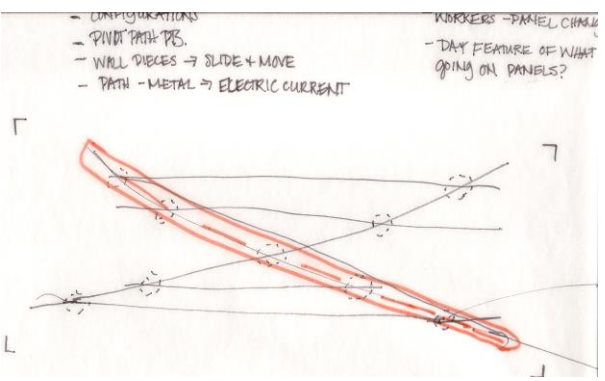 - CONFIGURATIONS
- PIVOT PATH PTS.
- WALL PIECES → SLIDE + MOVE
- PATH - METAL → ELECTRIC CURRENT
WORKERS - PANEL
- DAY FEATURE OF WHAT
GOING ON PANELS?